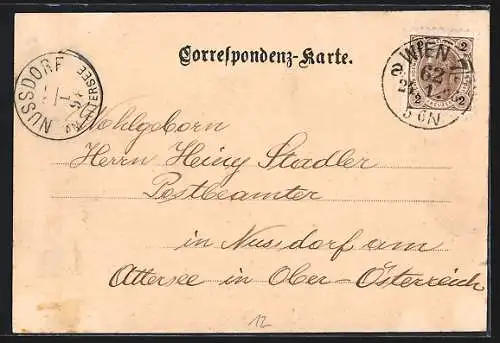 Correspondenz-Karte.
NUSSDORF
AM ATTERSEE
WIEN
62
5 6N
2 2
Wohlgeborn
Herrn Heiny Stadler
Postbeamter
in Nusdorf am
Attersee in Ober-Österreich
12